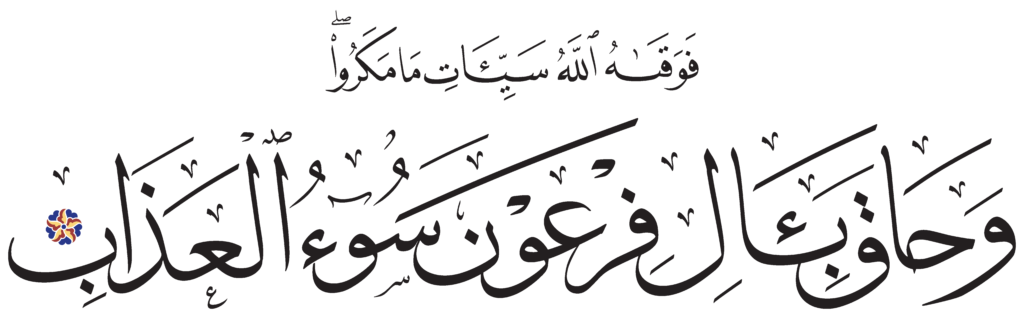 فَوَقَىٰهُ ٱللَّهُ سَيِّـَٔاتِ مَا مَكَرُوا۟ ۖ
وَحَاقَ بِـَٔالِ فِرْعَوْنَ سُوٓءُ ٱلْعَذَابِ